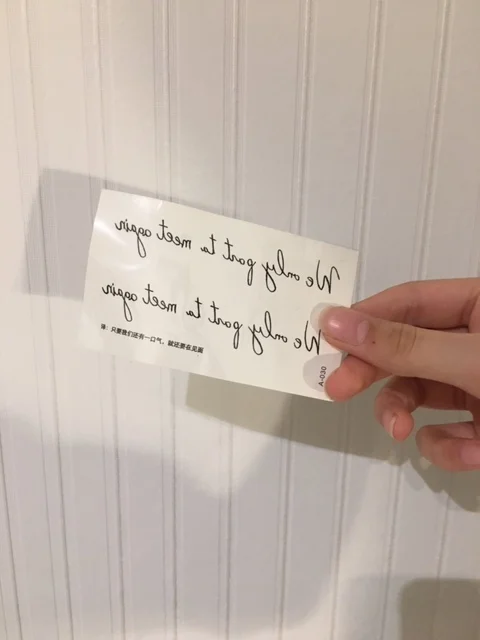 We only part to meet again
We only part to meet again
译：只要我们还有一口气，就还要在见面
A-030